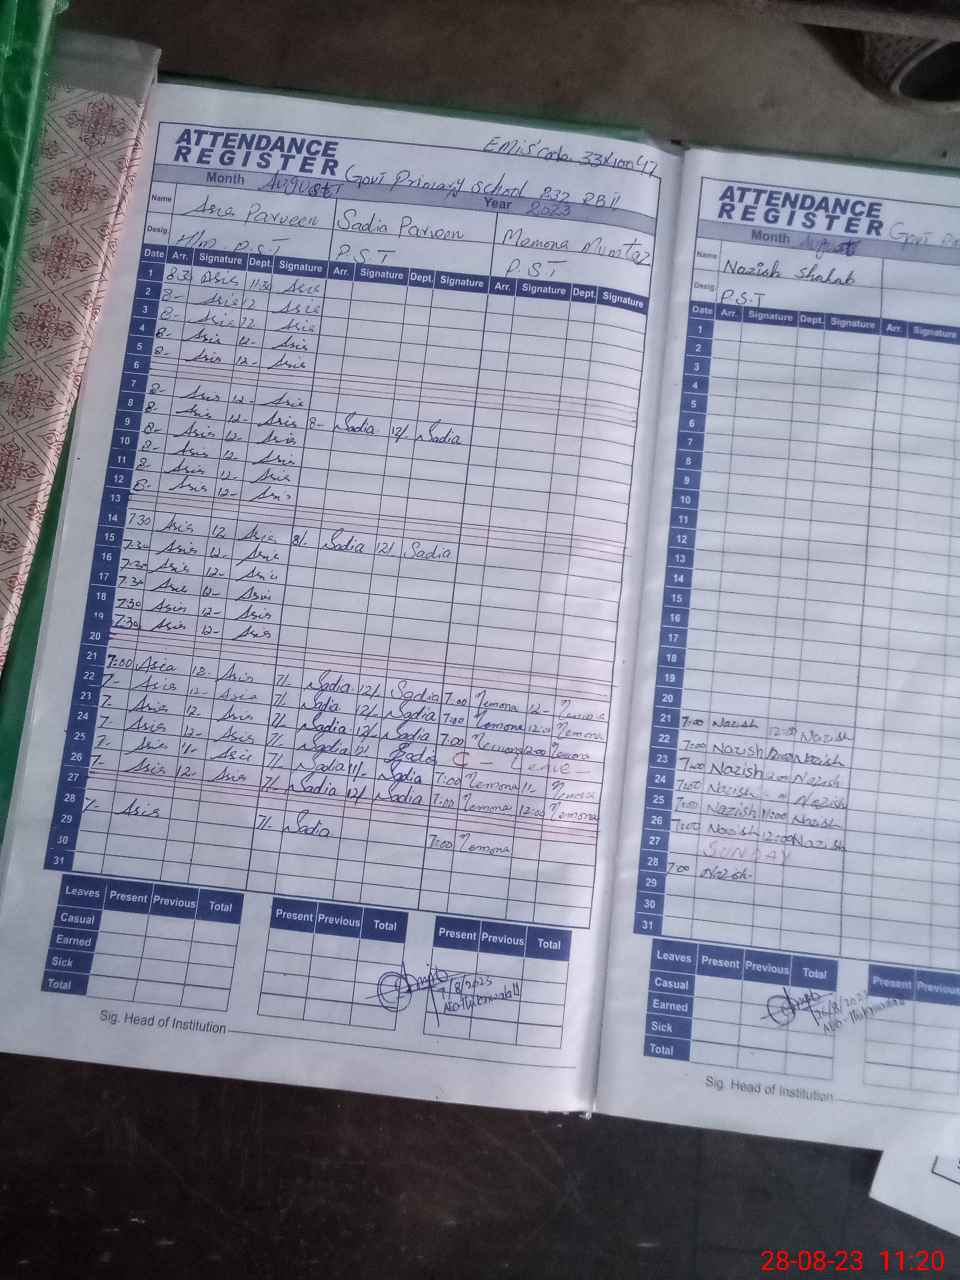 ATTENDANCE
REGISTER
EMIS code 33
Month August Govt Primary school 832 RB II
Year 2023
Name Asia Parveen Sadia Parveen Memona Mumtaz
Desig. H/M P.S.T P.S.T P.S.T
Date Arr. Signature Dept. Signature Arr. Signature Dept. Signature Arr. Signature Dept. Signature
1 8:30 Asia 11:30 Asia
2 8- Asia 12 Asia
3 8- Asia 12 Asia
4 8- Asia 12- Asia
5 8- Asia 12- Asia
6
7 8- Asia 12- Asia
8 8- Asia 12- Asia 8- Sadia 12/- Sadia
9 8- Asia 12- Asia
10 8- Asia 12 Asia
11 8- Asia 12- Asia
12 8- Asia 12- Asia
13
14 7:30 Asia 12 Asia 8/- Sadia 12/ Sadia
15 7:30 Asia 12- Asia
16 7:30 Asia 12- Asia
17 7:30 Asia 12- Asia
18 7:30 Asia 12- Asia
19 7:30 Asia 12- Asia
20
21 7:00 Asia 12- Asia 7/- Sadia 12/- Sadia 7:00 Memona 12- Memona
22 7- Asia 12- Asia 7/- Sadia 12/- Sadia 7:00 Memona 12:00 Memona
23 7- Asia 12- Asia 7/- Sadia 12/- Sadia 7:00 Memona 12:00 Memona
24 7- Asia 12- Asia 7/- Sadia 12/ Sadia C - Leave -
25 7- Asia 11/- Asia 7/- Sadia 11/- Sadia 7:00 Memona 11- Memona
26 7- Asia 12- Asia 7/- Sadia 12/ Sadia 7:00 Memona 12:00 Memona
27
28 7- Asia 7/- Sadia 7:00 Memona
29
30
31
Leaves Present Previous Total Present Previous Total Present Previous Total
Casual
Earned
Sick
Total
Sig. Head of Institution
ATTENDANCE
REGISTER
Month August Govt
Name Nazish Shahab
Desig. P.S.T
Date Arr. Signature Dept. Signature Arr. Signature
1
2
3
4
5
6
7
8
9
10
11
12
13
14
15
16
17
18
19
20
21 7:00 Nazish 12:00 Nazish
22 7:00 Nazish 12:00 Nazish
23 7:00 Nazish 12:00 Nazish
24 7:00 Nazish Nazish
25 7:00 Nazish 11:00 Nazish
26 7:00 Nazish 12:00 Nazish
27 SUNDAY
28 7:00 Nazish
29
30
31
Leaves Present Previous Total Present Previous
Casual
Earned
Sick
Total
Sig. Head of Institution
28-08-23 11:20